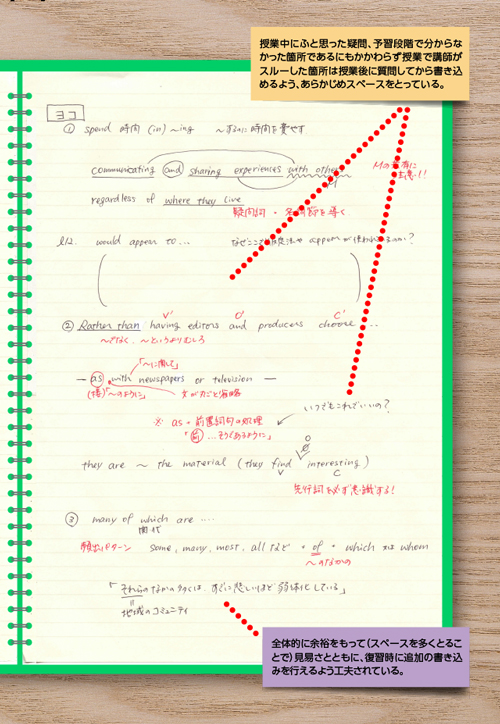 授業中にふと思った疑問、予習段階で分からな
かった箇所であるにもかかわらず授業で講師が
スルーした箇所は授業後に質問してから書き込
めるよう、あらかじめスペースをとっている。
ヨコ
① spend 時間 (in) ~ing ~するのに時間を費やす
communicating and sharing experiences with others
Mの
注意!!
regardless of where they live
疑問詞・名詞節を導く
l12. would appear to... なぜここで appear が使われているのか?
② Rather than having editors and producers choose ...
V' O' C'
~ではなく、~というよりむしろ
「~に関して」
— as with newspapers or television —
(接)「~のように」 文が力だと省略
※ as + 前置詞句の処理
「前 ... そうであるように」
いつでもこれでいいの?
they are ~ the material (they find interesting)
V O C
先行詞を必ず意識する!
③ many of which are ....
関代
頻出パターン some, many, most, all など + of + which 又は whom
~のなかの
「それらのなかの多くは、すでに悲しいほど弱体化している」
地域のコミュニティ
全体的に余裕をもって(スペースを多くとるこ
とで)見易さとともに、復習時に追加の書き込
みを行えるよう工夫されている。